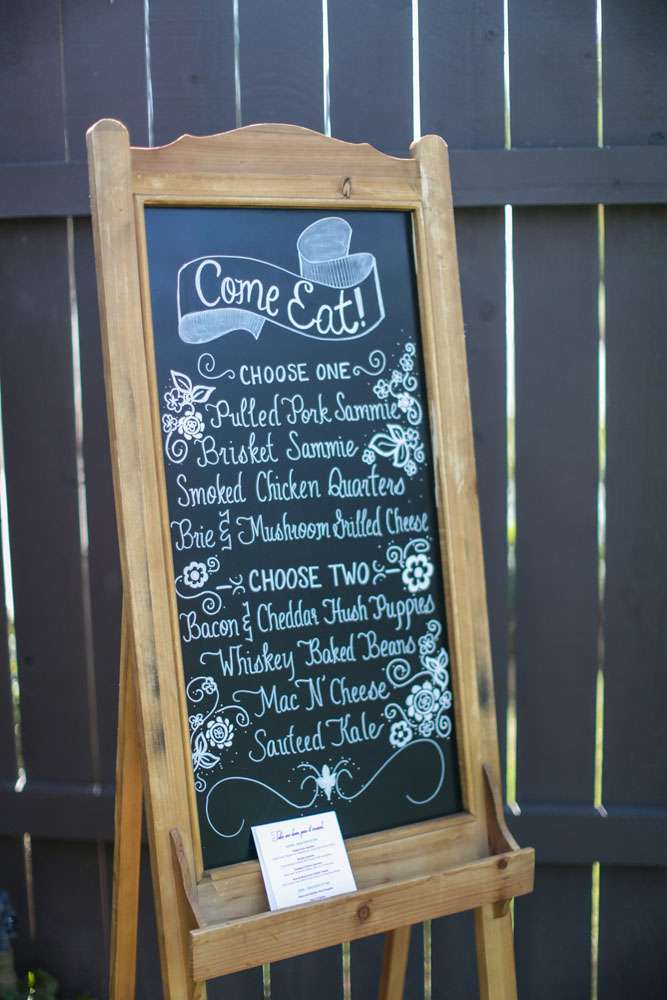 Come Eat!
CHOOSE ONE
Pulled Pork Sammie
Brisket Sammie
Smoked Chicken Quarters
Brie & Mushroom Grilled Cheese
CHOOSE TWO
Bacon & Cheddar Hush Puppies
Whiskey Baked Beans
Mac N' Cheese
Sauteed Kale